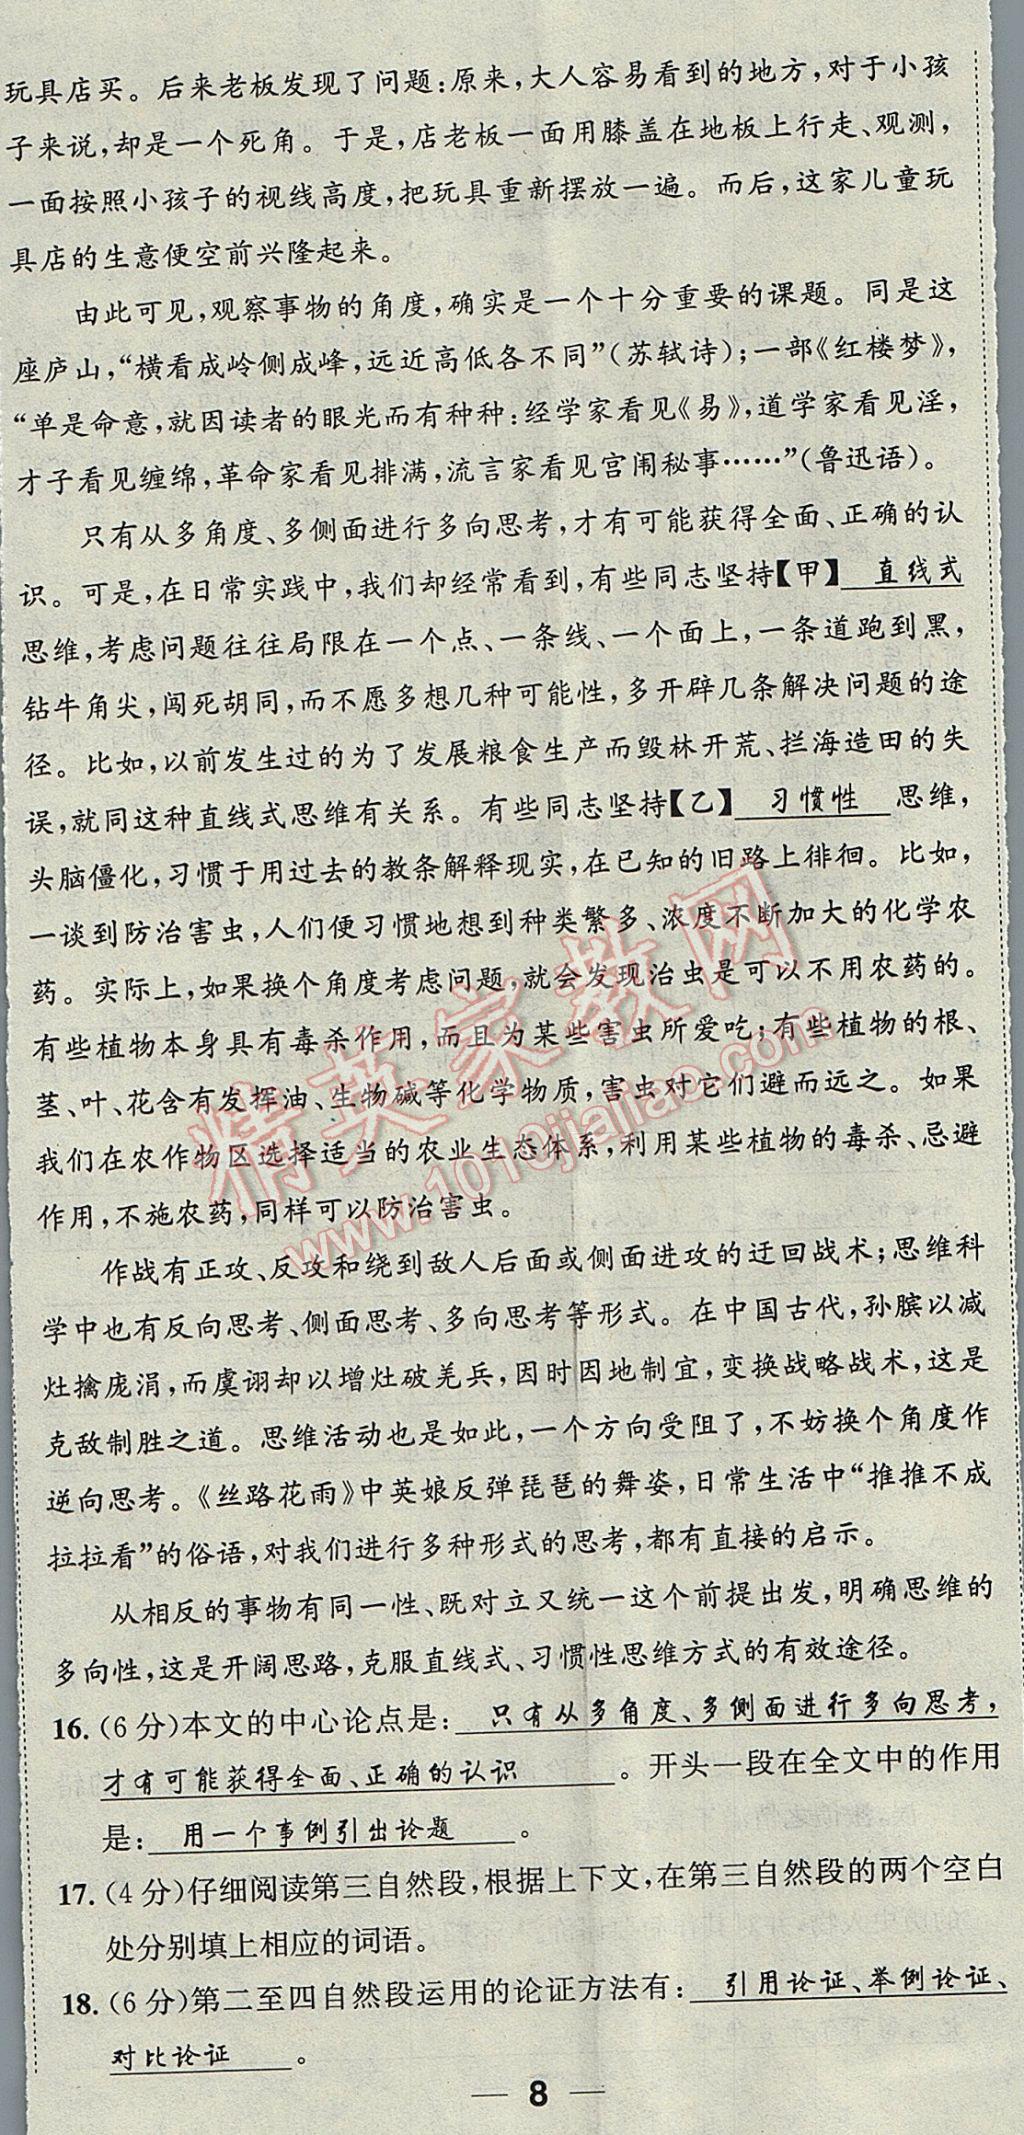 玩具店买。后来老板发现了问题:原来,大人容易看到的地方,对于小孩
子来说,却是一个死角。于是,店老板一面用膝盖在地板上行走、观测,
一面按照小孩子的视线高度,把玩具重新摆放一遍。而后,这家儿童玩
具店的生意便空前兴隆起来。
由此可见,观察事物的角度,确实是一个十分重要的课题。同是这
座庐山,“横看成岭侧成峰,远近高低各不同”(苏轼诗);一部《红楼梦》,
“单是命意,就因读者的眼光而有种种:经学家看见《易》,道学家看见淫,
才子看见缠绵,革命家看见排满,流言家看见宫闱秘事……”(鲁迅语)。
只有从多角度、多侧面进行多向思考,才有可能获得全面、正确的认
识。可是,在日常实践中,我们却经常看到,有些同志坚持【甲】 直线式
思维,考虑问题往往局限在一个点、一条线、一个面上,一条道跑到黑,
钻牛角尖,闯死胡同,而不愿多想几种可能性,多开辟几条解决问题的途
径。比如,以前发生过的为了发展粮食生产而毁林开荒、拦海造田的失
误,就同这种直线式思维有关系。有些同志坚持【乙】 习惯性 思维,
头脑僵化,习惯于用过去的教条解释现实,在已知的旧路上徘徊。比如,
一谈到防治害虫,人们便习惯地想到种类繁多、浓度不断加大的化学农
药。实际上,如果换个角度考虑问题,就会发现治虫是可以不用农药的。
有些植物本身具有毒杀作用,而且为某些害虫所爱吃;有些植物的根、
茎、叶、花含有发挥油、生物碱等化学物质,害虫对它们避而远之。如果
我们在农作物区选择适当的农业生态体系,利用某些植物的毒杀、忌避
作用,不施农药,同样可以防治害虫。
作战有正攻、反攻和绕到敌人后面或侧面进攻的迂回战术;思维科
学中也有反向思考、侧面思考、多向思考等形式。在中国古代,孙膑以减
灶擒庞涓,而虞诩却以增灶破羌兵,因时因地制宜,变换战略战术,这是
克敌制胜之道。思维活动也是如此,一个方向受阻了,不妨换个角度作
逆向思考。《丝路花雨》中英娘反弹琵琶的舞姿,日常生活中“推推不成
拉拉看”的俗语,对我们进行多种形式的思考,都有直接的启示。
从相反的事物有同一性、既对立又统一这个前提出发,明确思维的
多向性,这是开阔思路,克服直线式、习惯性思维方式的有效途径。
16.(6分)本文的中心论点是: 只有从多角度、多侧面进行多向思考,
才有可能获得全面、正确的认识 。开头一段在全文中的作用
是: 用一个事例引出论题 。
17.(4分)仔细阅读第三自然段,根据上下文,在第三自然段的两个空白
处分别填上相应的词语。
18.(6分)第二至四自然段运用的论证方法有: 引用论证、举例论证、
对比论证 。
— 8 —
精英家教网
www.1010jiajiao.com